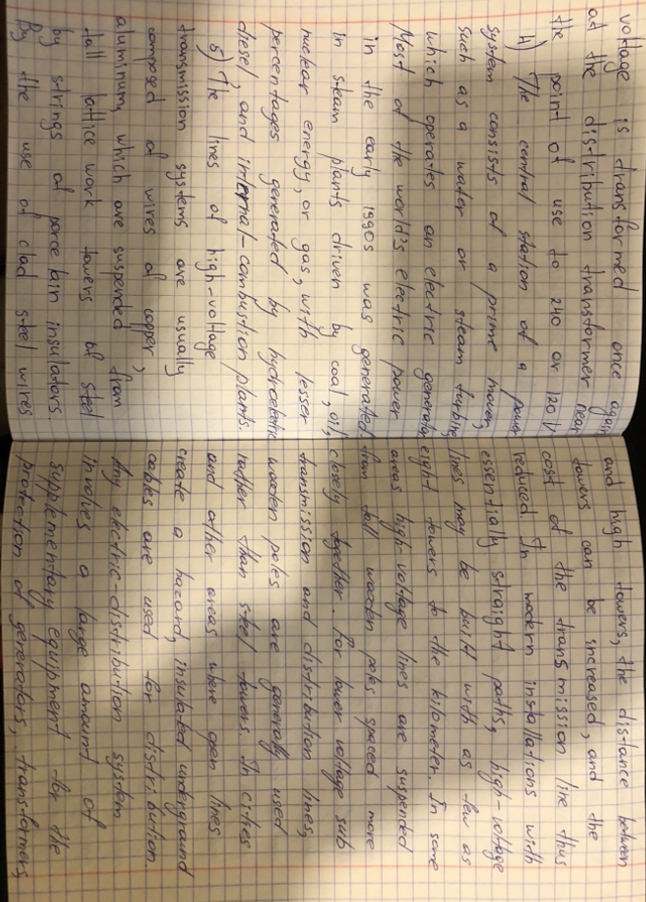 voltage is transformed once again
at the distribution transformer near
the point of use to 240 or 120 V
4) The central station of a power
system consists of a prime mover,
such as a water or steam turbine,
which operates an electric generator
Most of the world's electric power
in the early 1990s was generated
in steam plants driven by coal, oil,
nuclear energy, or gas, with lesser
percentages generated by hydroelectric
diesel, and internal-combustion plants.
5) The lines of high-voltage
transmission systems are usually
composed of wires of copper,
aluminum, which are suspended from
tall lattice work towers of steel
by strings of porcelain insulators.
By the use of clad steel wires
and high towers, the distance between
towers can be increased, and the
cost of the transmission line thus
reduced. In modern installations with
essentially straight paths, high-voltage
lines may be built with as few as
eight towers to the kilometer. In some
areas high-voltage lines are suspended
from tall wooden poles spaced more
closely together. For lower voltage sub
transmission and distribution lines,
wooden poles are generally used
rather than steel towers. In cities
and other areas where open lines
create a hazard, insulated underground
cables are used for distribution.
Any electric-distribution system
involves a large amount of
supplementary equipment for the
protection of generators, transformers,